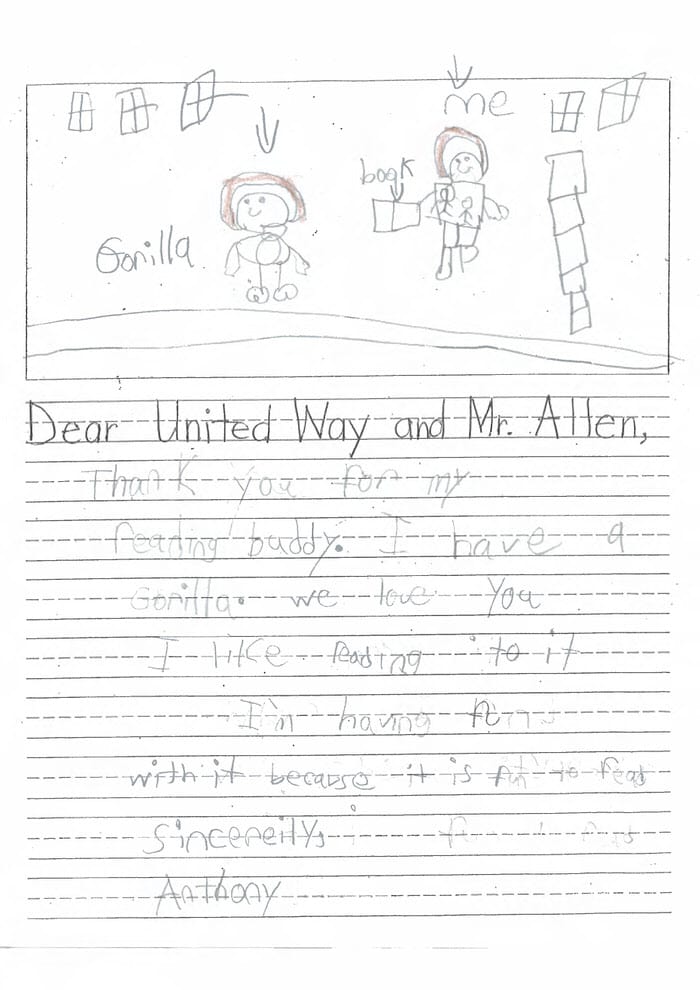 me
book
Gorilla
Dear United Way and Mr. Allen,
Thank you for my
reading buddy. I have a
Gorilla. we love you
I like reading to it
I'm having
with it because it is fun to read
sincereity,
Anthony